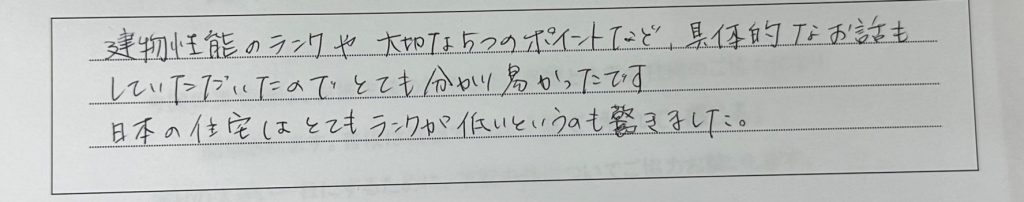 建物性能のランクや 大切な5つのポイントなど、具体的なお話も
していただいたので とても 分かり易かったです
日本の住宅はとてもランクが低いというのも驚きました。